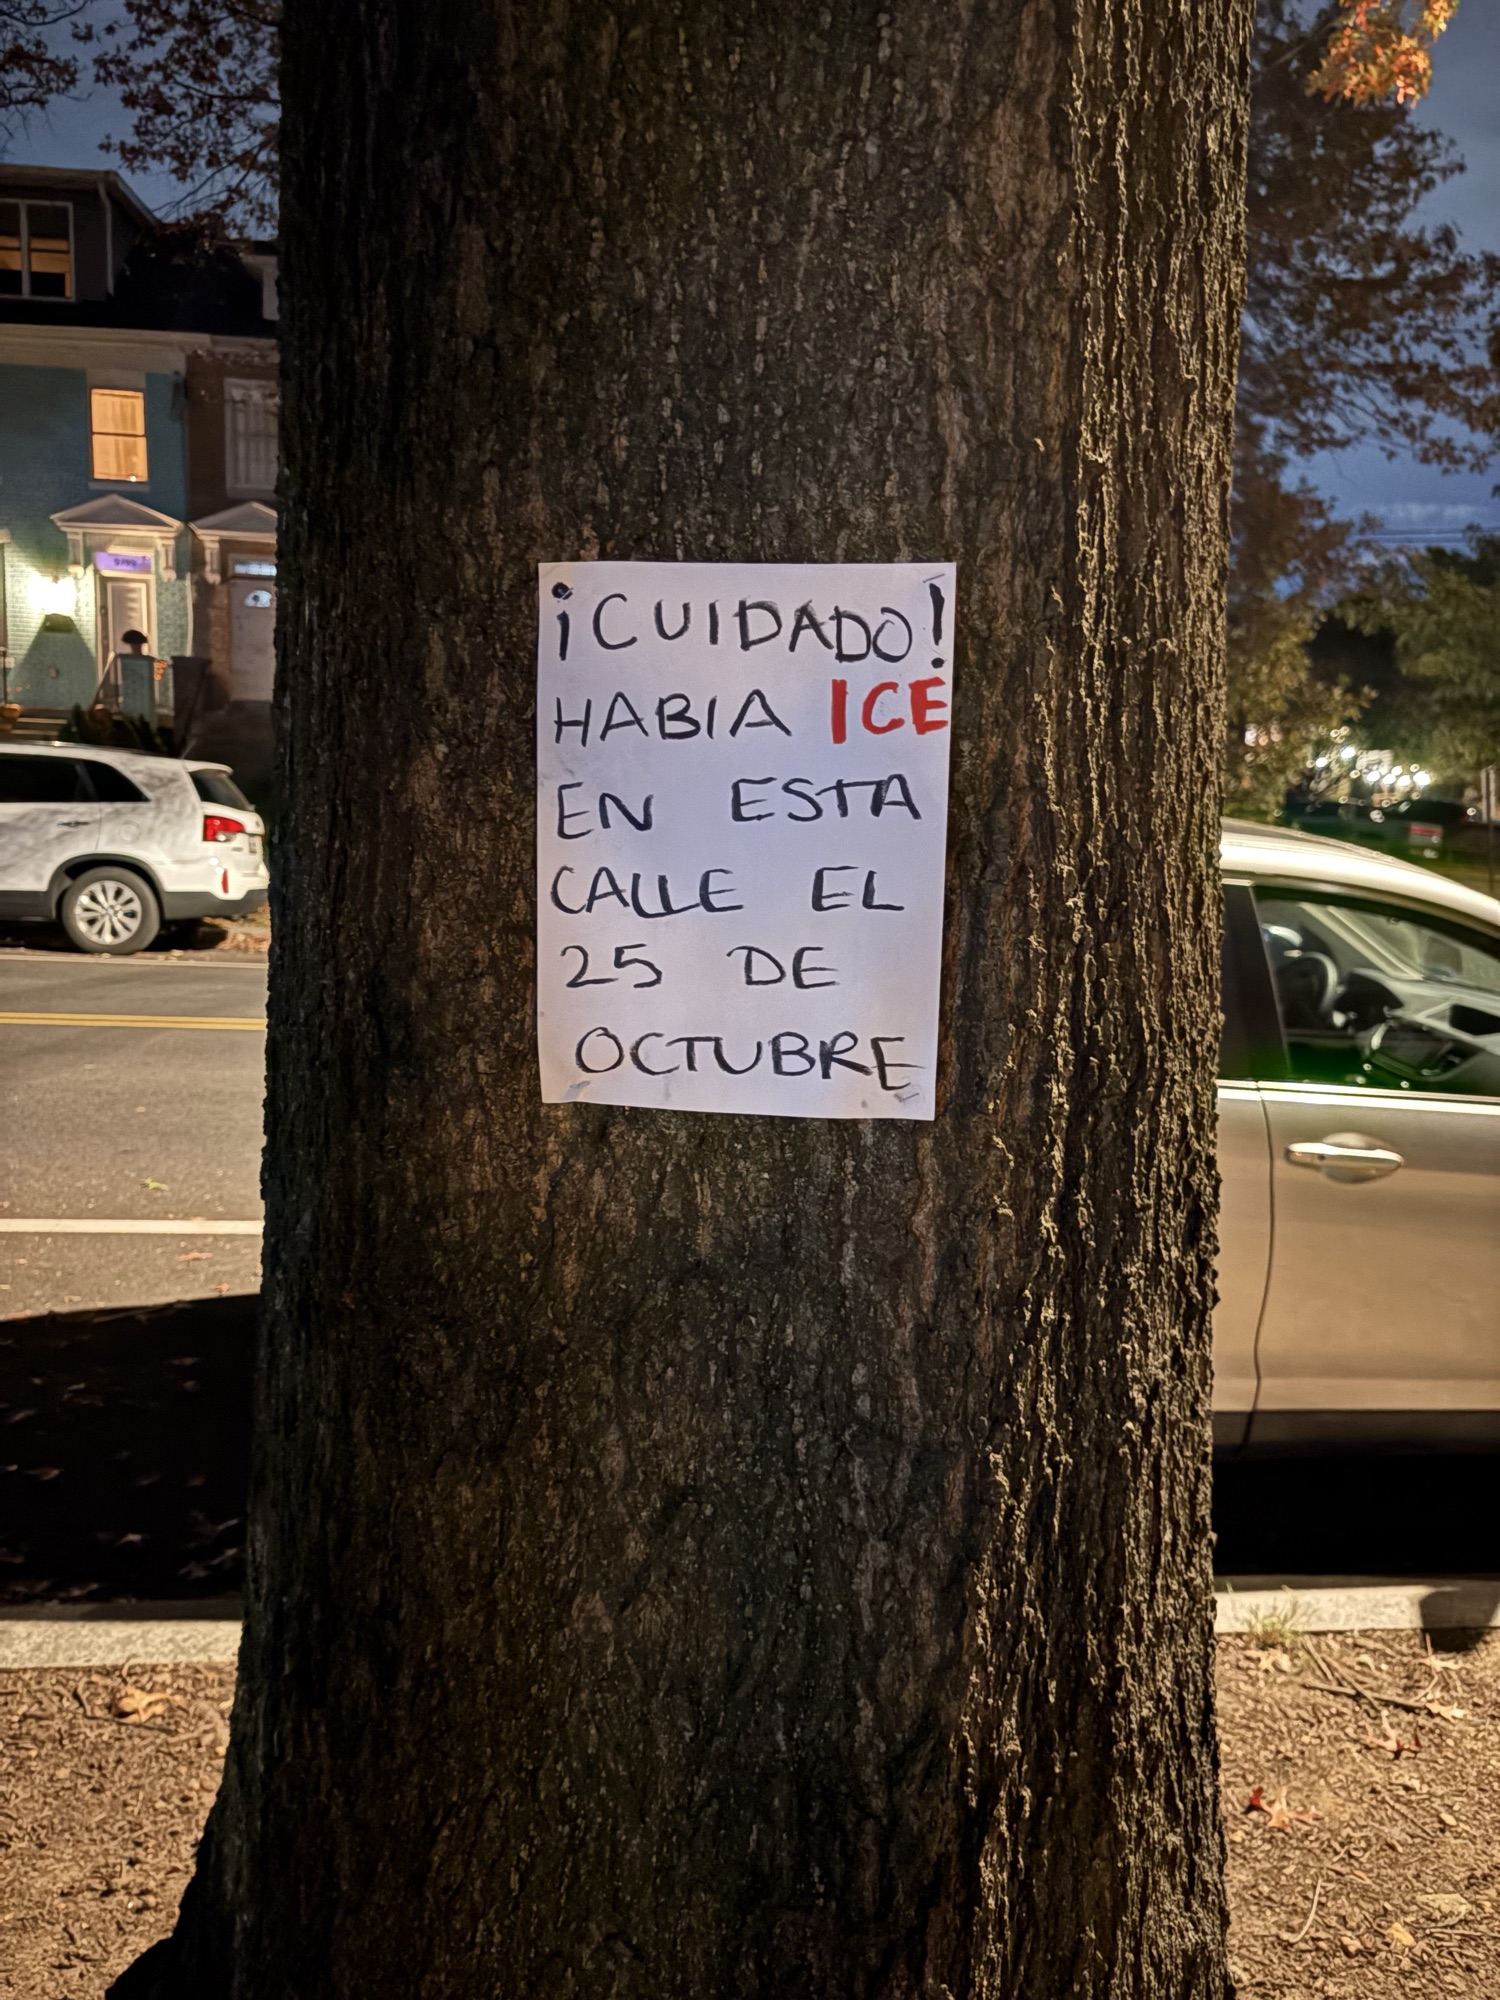 ¡CUIDADO!
HABIA ICE
EN ESTA
CALLE EL
25 DE
OCTUBRE